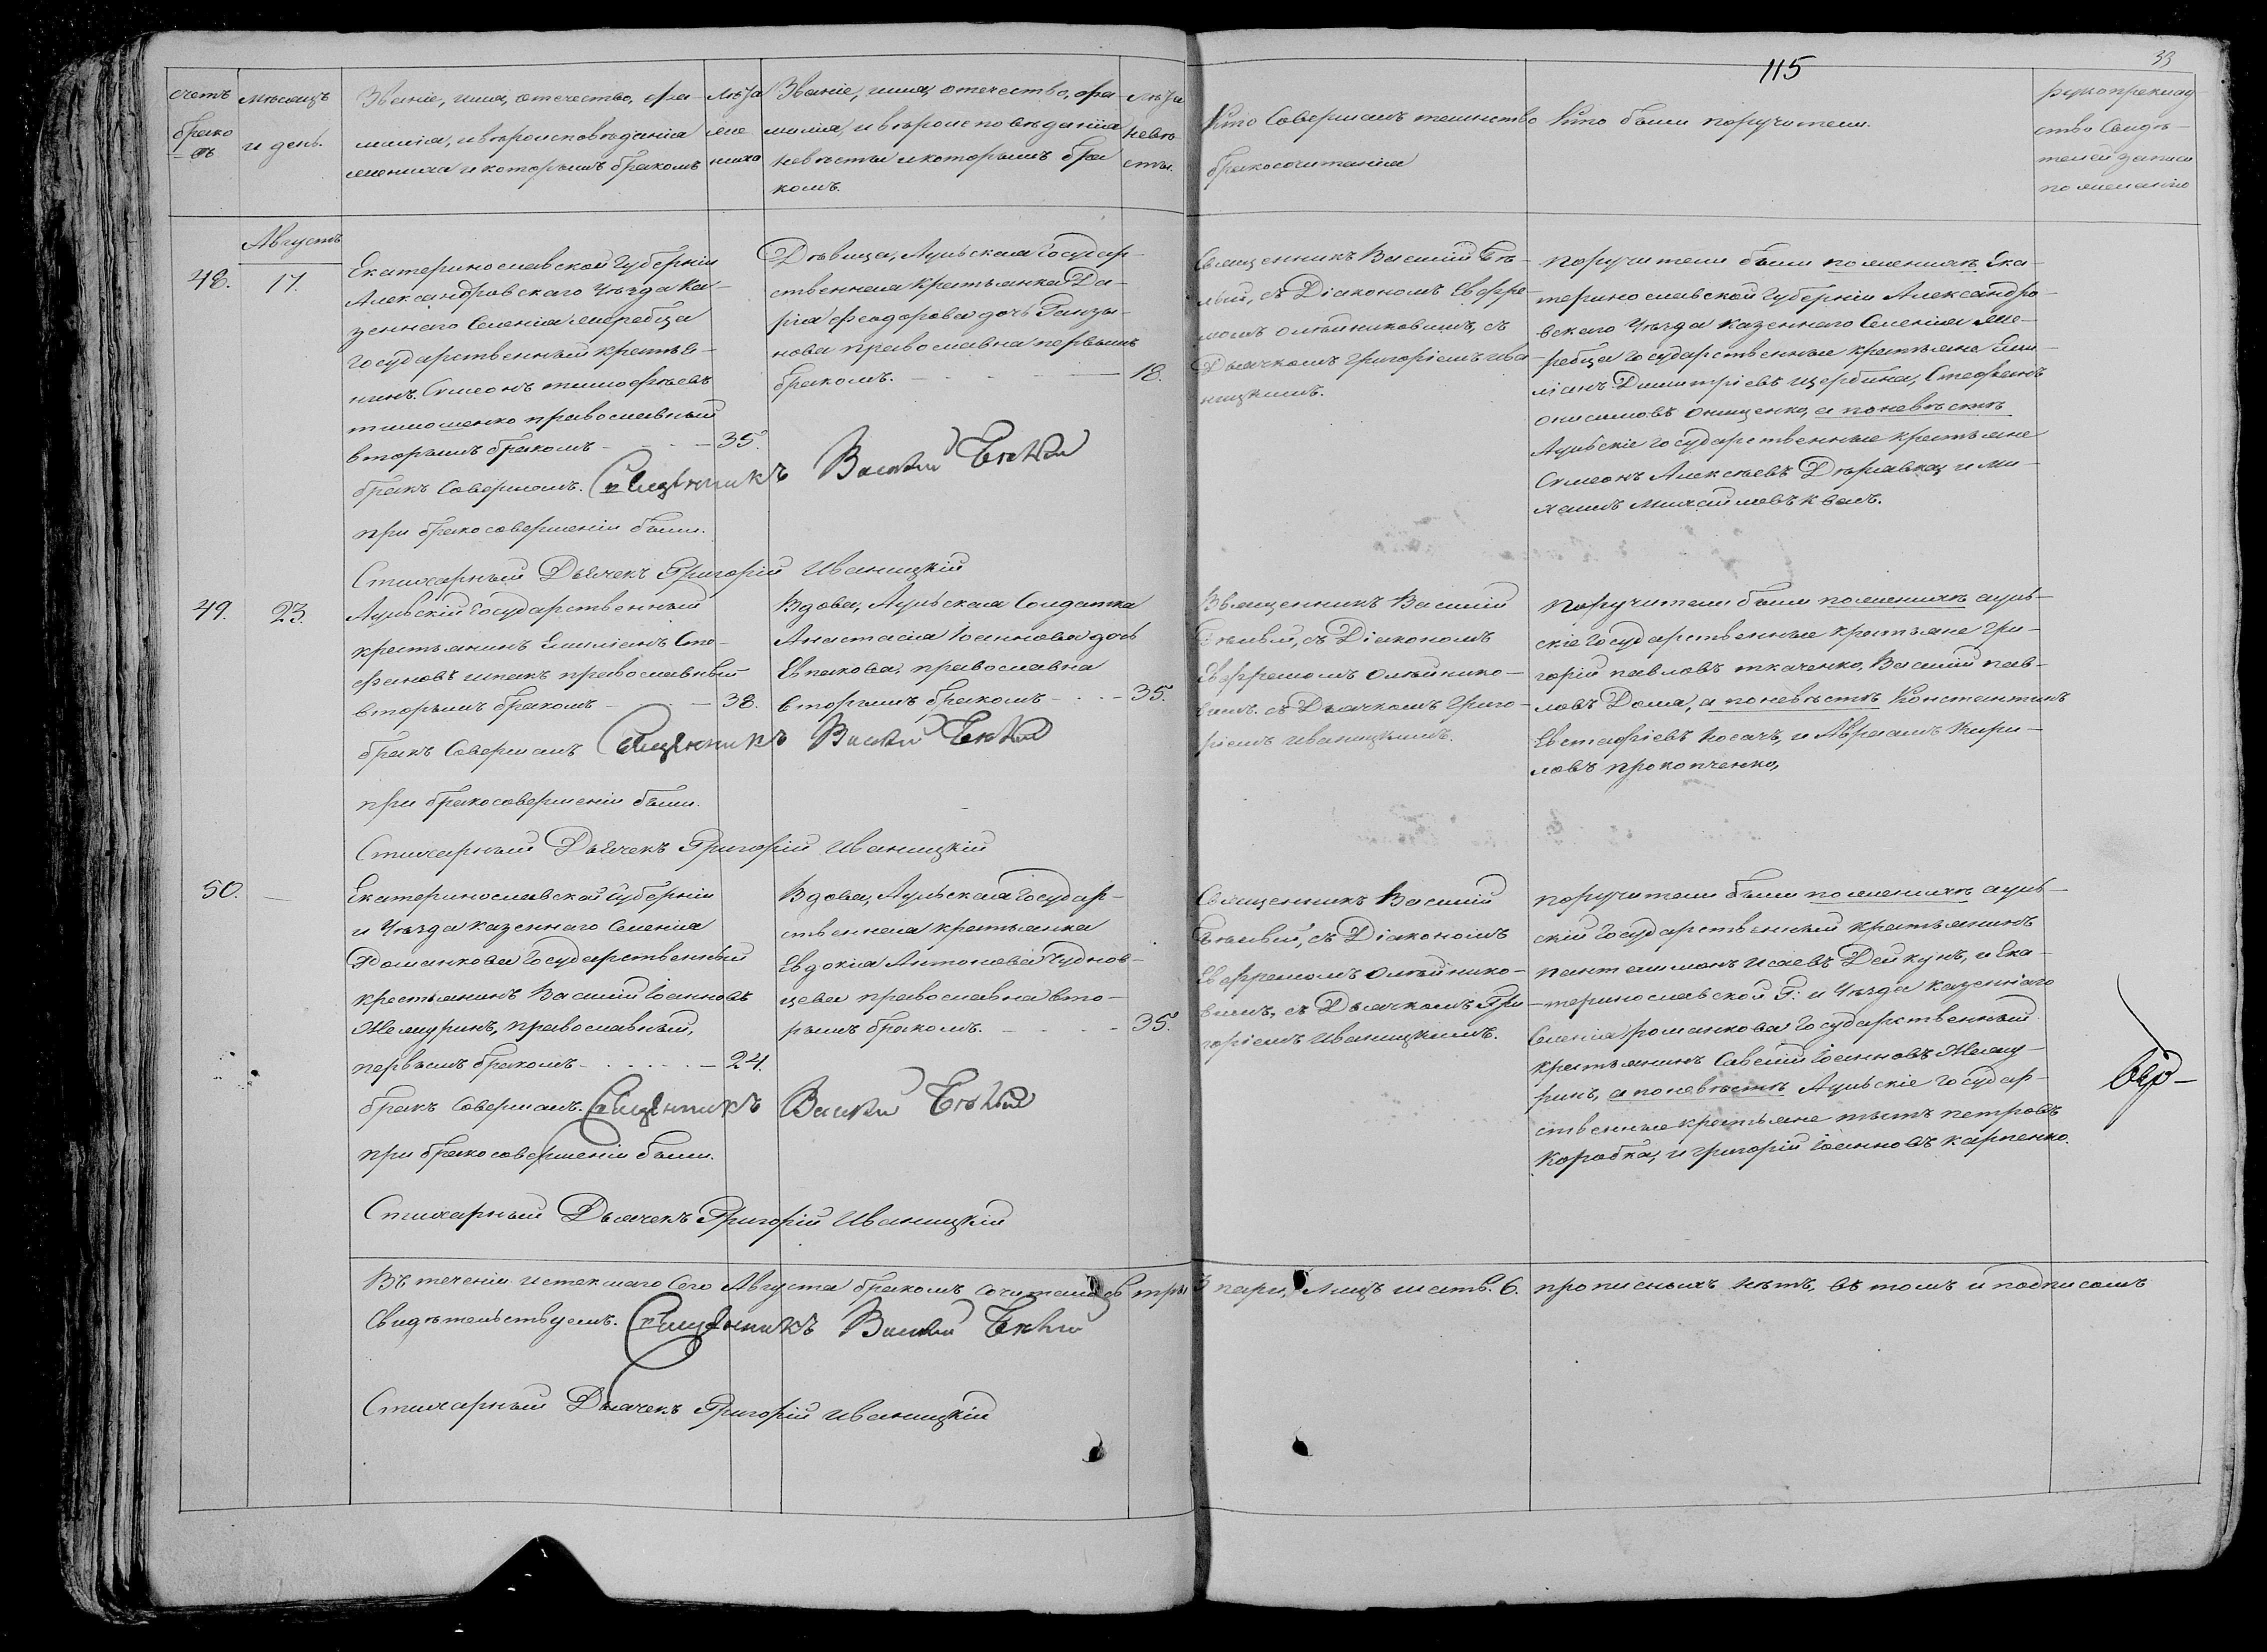 115
33
счетъ
брако
въ
мѣсяцъ
и день.
Званіе, имя, отечество, фа-
милія, и вѣроисповѣданія
жениха и которымъ бракомъ
лѣта
же
ниха
Званіе, имя, отечество, фа-
милія, и вѣроисповѣданія
невѣсты и которымъ бра
комъ.
лѣта
невѣ
сты.
Кто Совершалъ таинство
бракосочитанія
Кто были поручители.
рукоприклад
ство Свидѣ-
телей записи
по желанію
Августъ
48.
17.
Екатеринославской Губерніи
Александровскаго Уѣзда Ка-
зеннаго Селенія жеребца
Государственный крестья-
нинъ Симеонъ тимофѣевъ
тимошенко православный
вторымъ бракомъ - 35.
Дѣвица, Аульская Государ-
ственная крестьянка Да-
рія феодорова дочь
нова православна первымъ
бракомъ. - 18.
Священникъ Василій Бѣ-
лый, съ Діакономъ Евфре-
момъ олѣйниковымъ, съ
Дьячкомъ григоріемъ ива-
ницкимъ.
поручители были по женихѣ Ека-
теринославской Губерніи Александро-
вскаго Уѣзда казеннаго Селенія же-
ребца государственные крестьяне Еми-
ліанъ Димитріевъ щербина, Стефанъ
онисимовъ онищенко, а по невѣстѣ
Аульскіе государственные крестьяне
Симеонъ Алексѣевъ Державец и ми-
хаилъ михайловъ квач.
бракъ Совершалъ. Священникъ Василій Бѣлый
при бракосовершеніи были.
Стихарный Дьячекъ Григорій Иваницкій
49.
23.
Аульскій государственный
крестьянинъ Емиліанъ Сте-
фановъ шпакъ православный
вторымъ бракомъ - 38.
Вдова, Аульская Солдатка
Анастасія Іоаннова дочь
Евпакова, православна
вторымъ бракомъ - 35.
Священникъ Василій
Бѣлый, съ Діакономъ
Евфремомъ Олѣйнико-
вымъ. съ Дьячкомъ григо-
ріемъ иваницкимъ.
поручители были по женихѣ ауль-
скіе государственные крестьяне гри-
горій павловъ ткаченко, Василій пав-
ловъ Дома, а по невѣстѣ Константинъ
Евстафіевъ носачъ, и Авраамъ Кири-
ловъ прокопченко,
бракъ Совершалъ Священникъ Василій Бѣлый
при бракосовершеніи были.
Стихарный Дьячекъ Григорій Иваницкій
50.
—
Екатеринославской губерніи
и Уѣзда казеннаго Селенія
Романкова государственный
крестьянинъ Василій Іоанновъ
Жемчуринъ, православный,
первымъ бракомъ - 24.
Вдова, Аульская государ-
ственная крестьянка
Евдокія Антонова Чуднов-
цева православна вто-
рымъ бракомъ. - 35.
Священникъ Василій
Бѣлый, съ Діакономъ
Евфремомъ Олѣйнико-
вымъ, съ Дьячкомъ Гри-
горіемъ Иваницкимъ.
поручители были по женихѣ ауль-
скій государственный крестьянинъ
пантелимонъ исаевъ Дейкунъ, и Ека-
теринославской Г: и Уѣзда казеннаго
Селенія романкова государственный
крестьянинъ Савелій Іоанновъ Жемчу-
ринъ, а по невѣстѣ Аульскіе государ-
ственные крестьяне титъ петровъ
Коробка, и григорій Іоанновъ карпенко.
бракъ Совершалъ. Священникъ Василій Бѣлый
при бракосовершеніи были.
Стихарный Дьячекъ Григорій Иваницкій
Въ теченіи истекшаго Сего Августа бракомъ сочиталось три 3 пары, Лицъ шесть. 6. прописныхъ нѣтъ, въ томъ и подписомъ
Свидѣтельствуемъ. Священникъ Василій Бѣлый
Стихарный Дьячекъ Григорій иваницкій